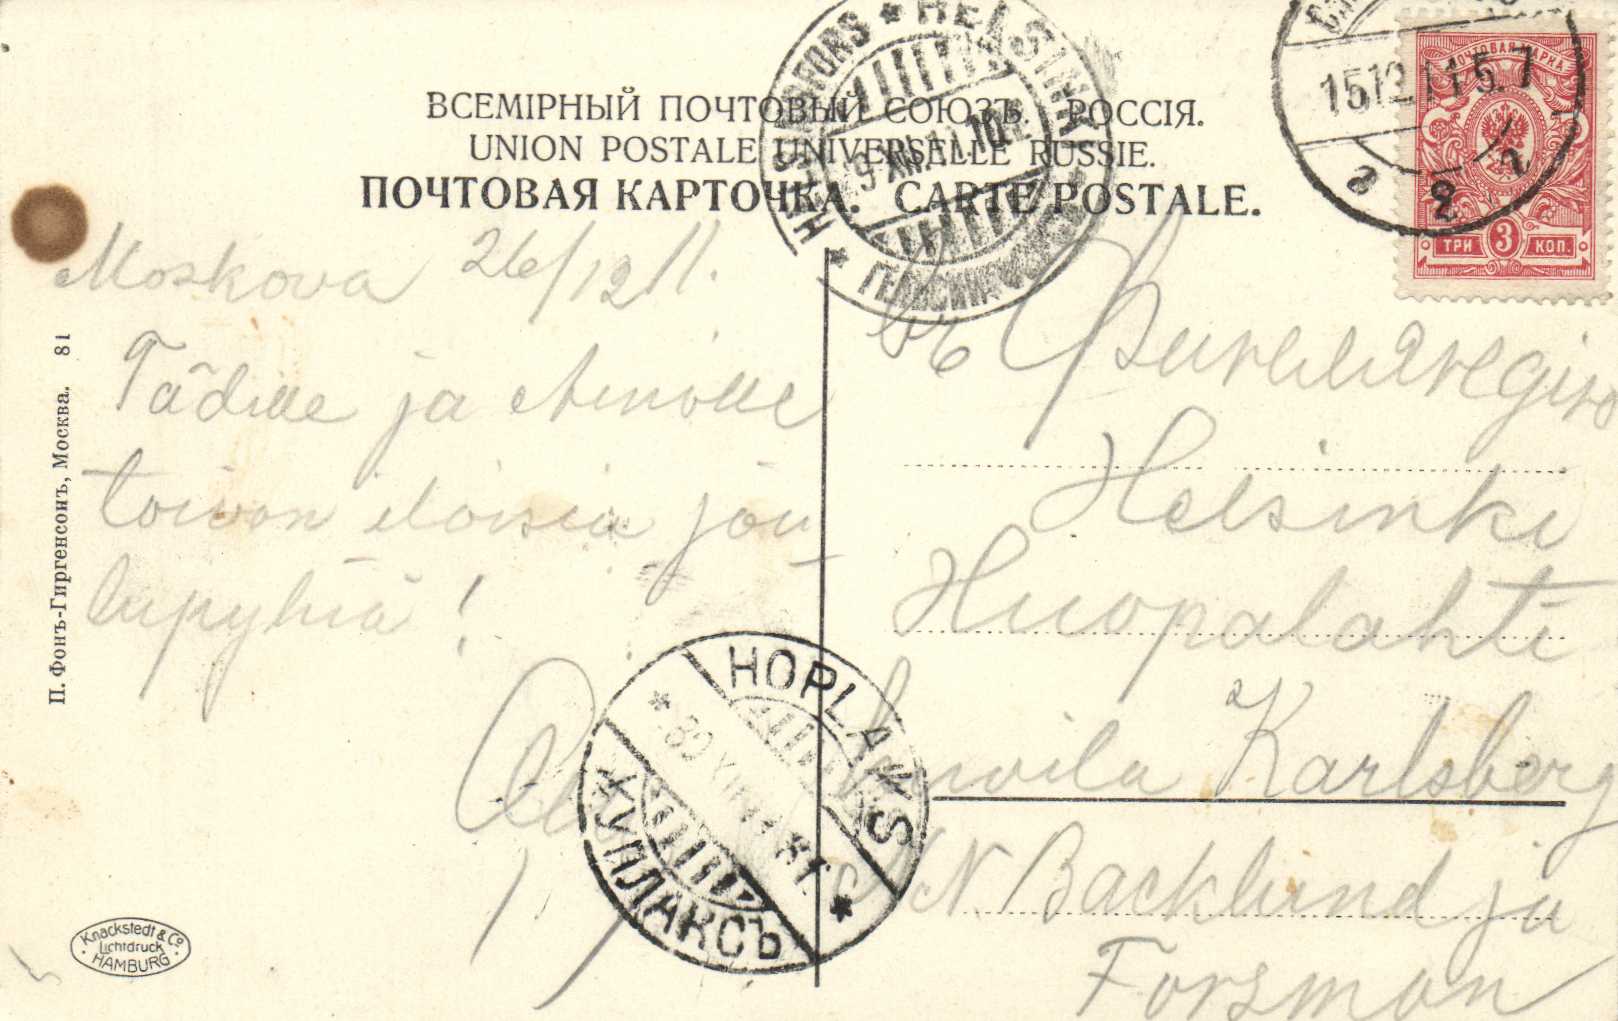 ВСЕМІРНЫЙ ПОЧТОВЫЙ СОЮЗЪ. РОССІЯ.
UNION POSTALE UNIVERSELLE RUSSIE.
ПОЧТОВАЯ КАРТОЧКА. CARTE POSTALE.
HELSINGFORS * HELSINKI
9.XII.11.10
ПОЧТОВАЯ МАРКА
ТРИ 3 КОП.
1512115.7
Moskova 26/12 11.
Tädille ja Ainolle
toivon iloisia jou-
lupyhiä!
Въ Финляндію
Helsinki
Huopalahti
Karlsberg
N Backlund ja
Forsman
HOPLAKS
ХУПЛАКСЪ
П. Фонъ-Гиргенсонъ, Москва. 81
Knackstedt & Co
Lichtdruck
HAMBURG